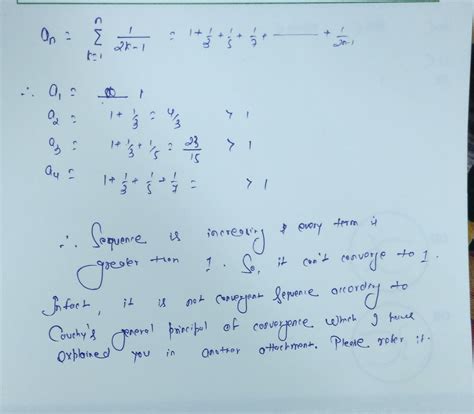 aₙ = ∑ⁿₖ₌₁ 1/(2k-1) = 1 + 1/3 + 1/5 + 1/7 + ——— + 1/(2n-1)
∴ a₁ = 1
a₂ = 1 + 1/3 = 4/3 > 1
a₃ = 1 + 1/3 + 1/5 = 23/15 > 1
a₄ = 1 + 1/3 + 1/5 + 1/7 = > 1
∴ Sequence is increasing & every term is
greater than 1. So, it can't converge to 1.
Infact, it is not convergent sequence according to
Couchy's general principal of convergence which I have
explained you in another attachment. Please refer it.